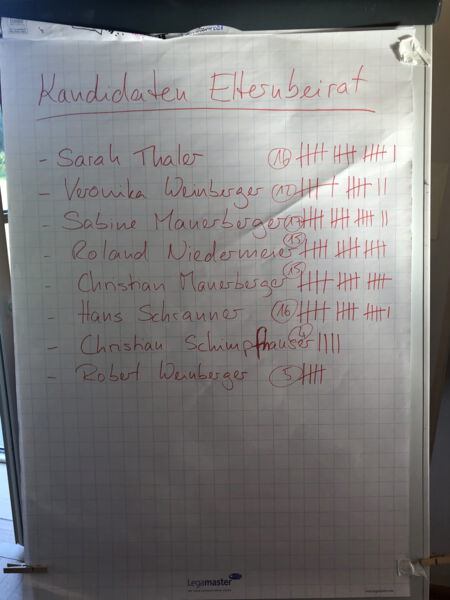 Kandidaten Elternbeirat
- Sarah Thaler 16 |||| |||| |||| |
- Veronika Weinberger 12 |||| |||| ||
- Sabine Mauerberger 17 |||| |||| |||| ||
- Roland Niedermeier 15 |||| |||| ||||
- Christian Mauerberger 15 |||| |||| ||||
- Hans Schranner 16 |||| |||| |||| |
- Christian Schimpfhauser 4 ||||
- Robert Weinberger 5 ||||
Legamaster